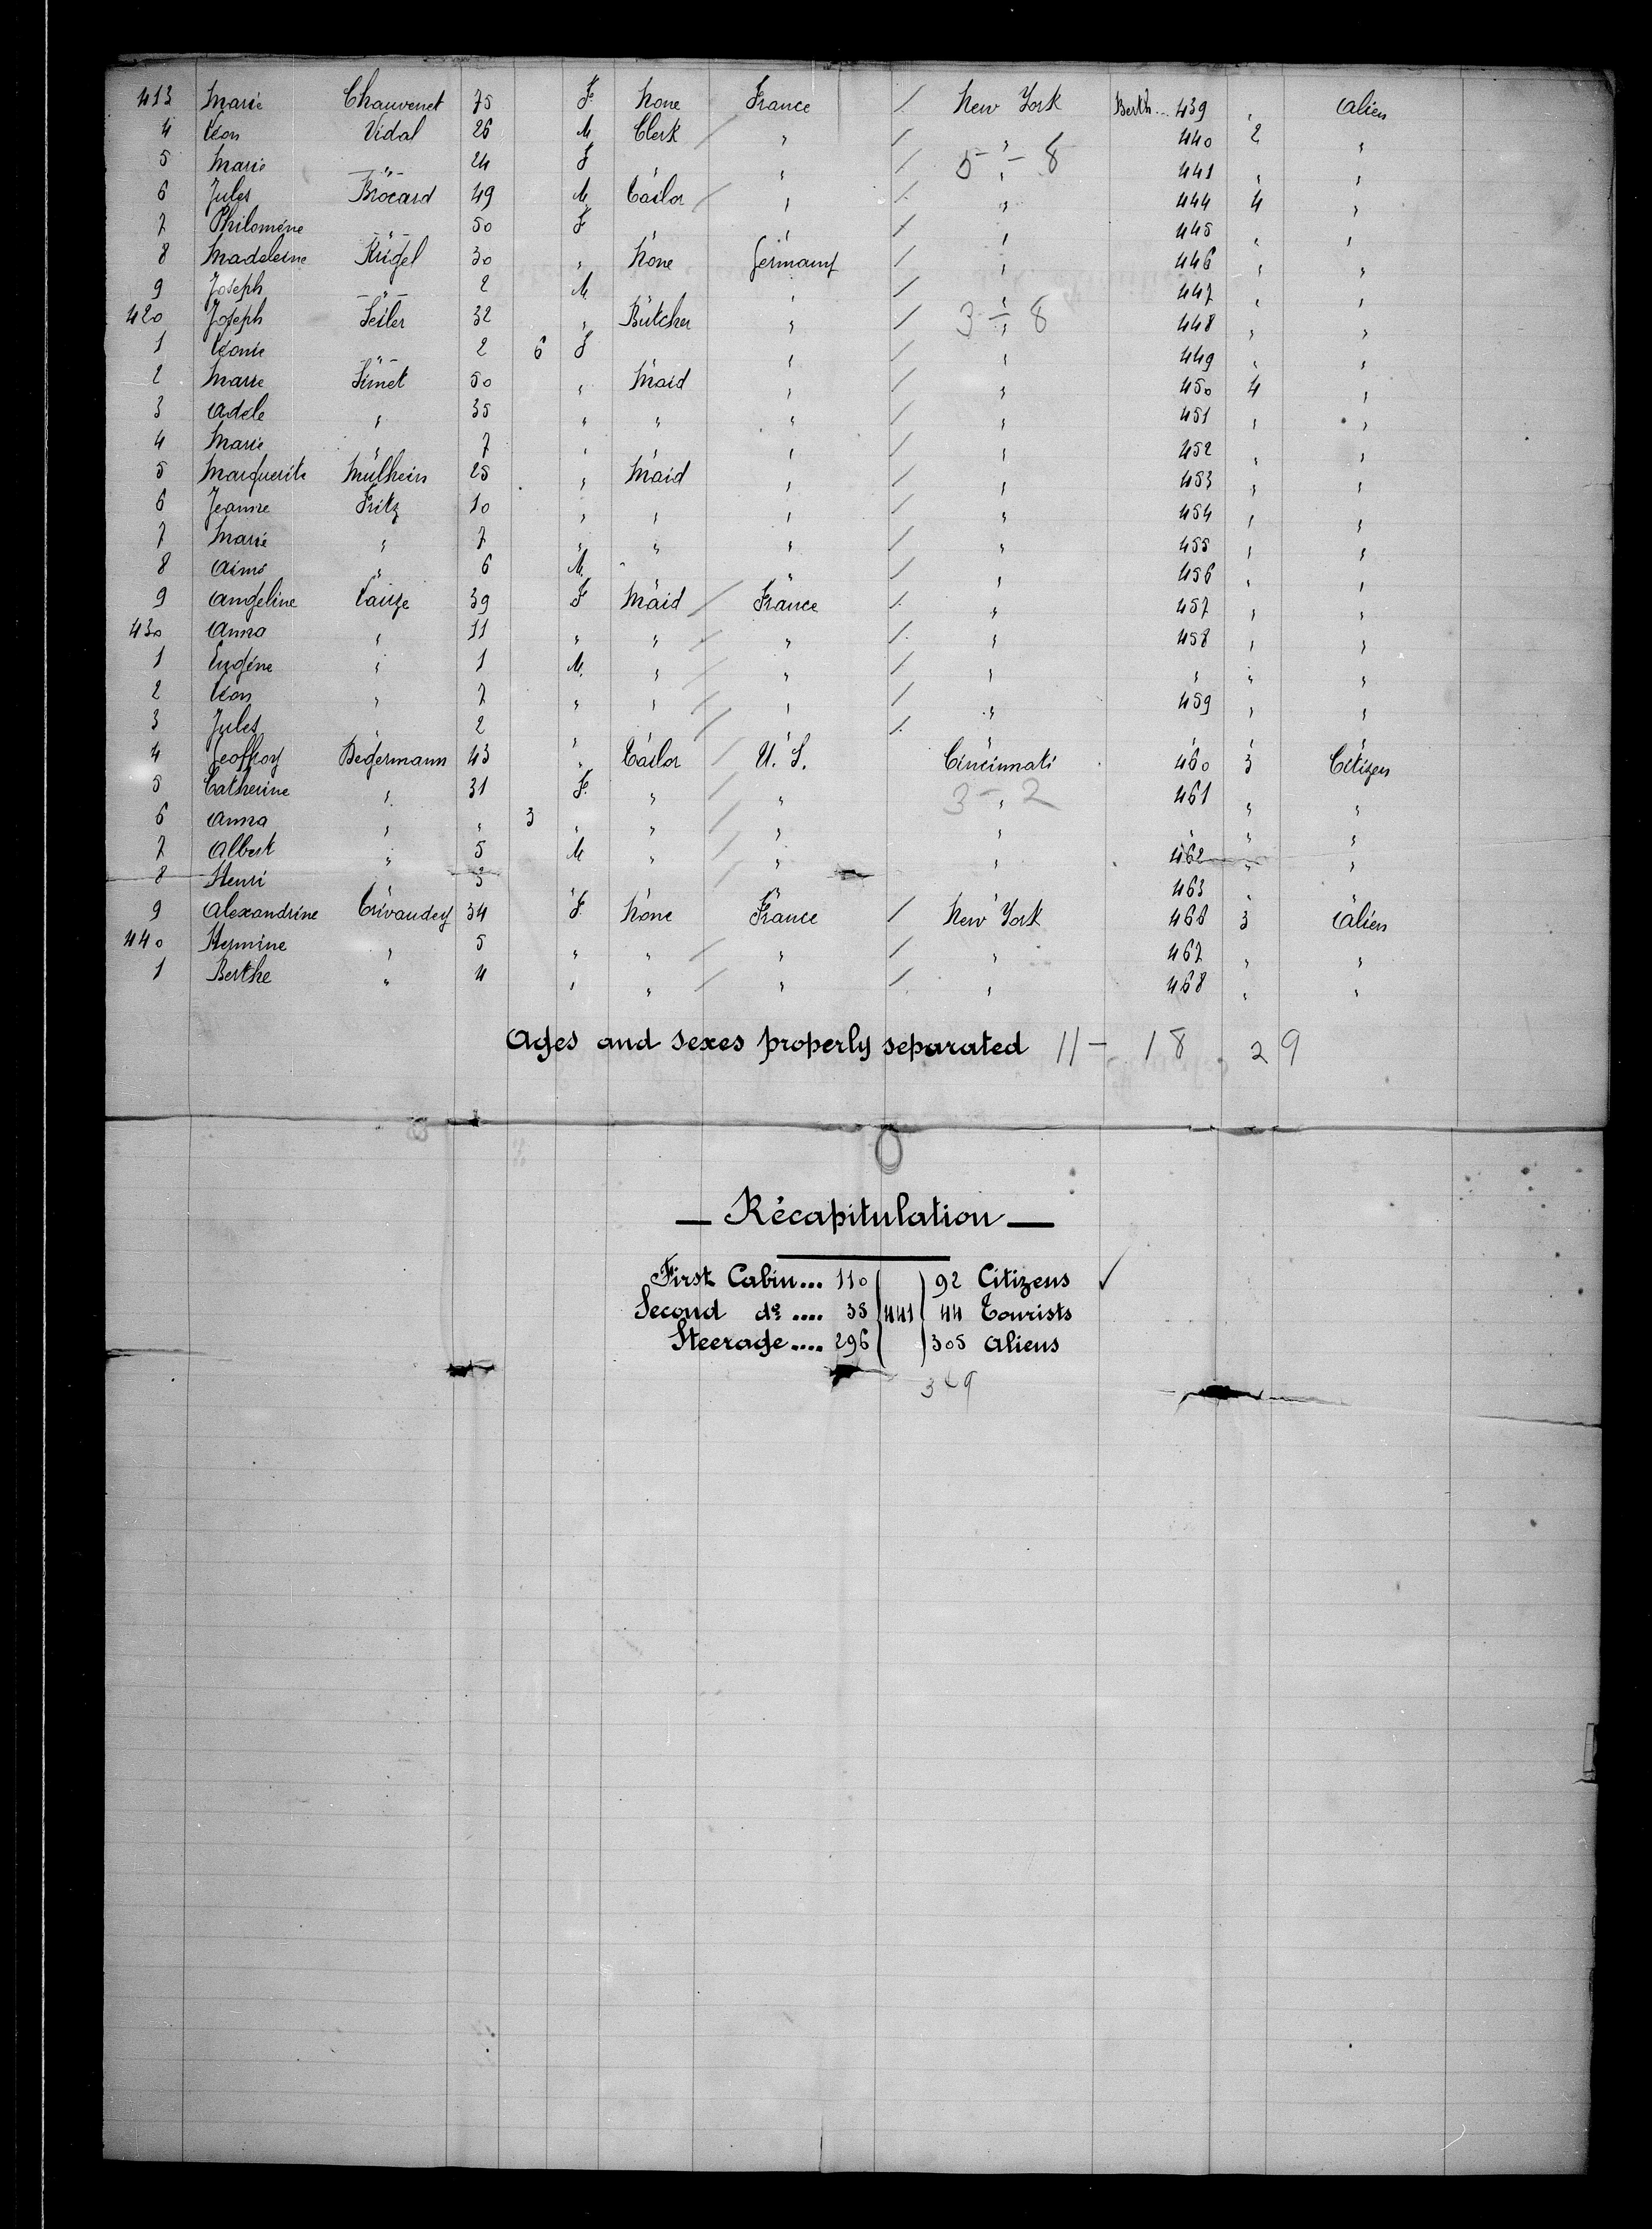 413 Marie Chauvenet 75 F. None France / New York Berth... 439 " Alien
4 Léon Vidal 26 M. Clerk / " / " 440 2 "
5 Marie —"— 24 F " " / " 5 - 8 441 " "
6 Jules Brocard 49 M. Tailor / " / " 444 4 "
7 Philomène —"— 50 F " " / " 445 " "
8 Madeleine Krigel 30 " None Germany / " 446 " "
9 Joseph —"— 2 M. " " / " 447 " "
420 Joseph Seiler 32 " Butcher " / 3 - 8 448 " "
1 Léonie —"— 2 6 F " / " 449 " "
2 Marie Simet 50 " Maid " / " 450 4 "
3 Adèle " 35 " " " / " 451 " "
4 Marie " 7 " " " / " 452 " "
5 Marguerite Mülhein 25 " Maid " / " 453 " "
6 Jeanne Fritz 10 " " " / " 454 " "
7 Marie " 7 " " " / " 455 " "
8 Aimé " 6 M. " " / " 456 " "
9 Angeline 39 F Maid / France / " 457 " "
430 Anna " 11 " " / " / " 458 " "
1 Eugène " 1 M. " / " / " " " "
2 Léon " 7 " " / " / " 459 " "
3 Jules " 2 " " / " / " " " "
4 Geoffroy Degermann 43 " Tailor / U. S. Cincinnati 460 3 Citizen
5 Catherine " 31 F. " / " 3 - 2 461 " "
6 Anna " " 3 " " / " " " " "
7 Albert " 5 M " / " " 462 " "
8 Henri " 3 " " / " " 463 " "
9 Alexandrine Trivaudey 34 F. None France / New York 466 3 Alien
440 Hermine " 5 " " / " / " 467 " "
1 Berthe " 4 " " / " / " 468 " "
Ages and sexes properly separated 11 - 18 . 29
— Récapitulation —
First Cabin... 110 92 Citizens ✓
Second do .... 35 441 44 Tourists
Steerage.... 296 305 Aliens
349